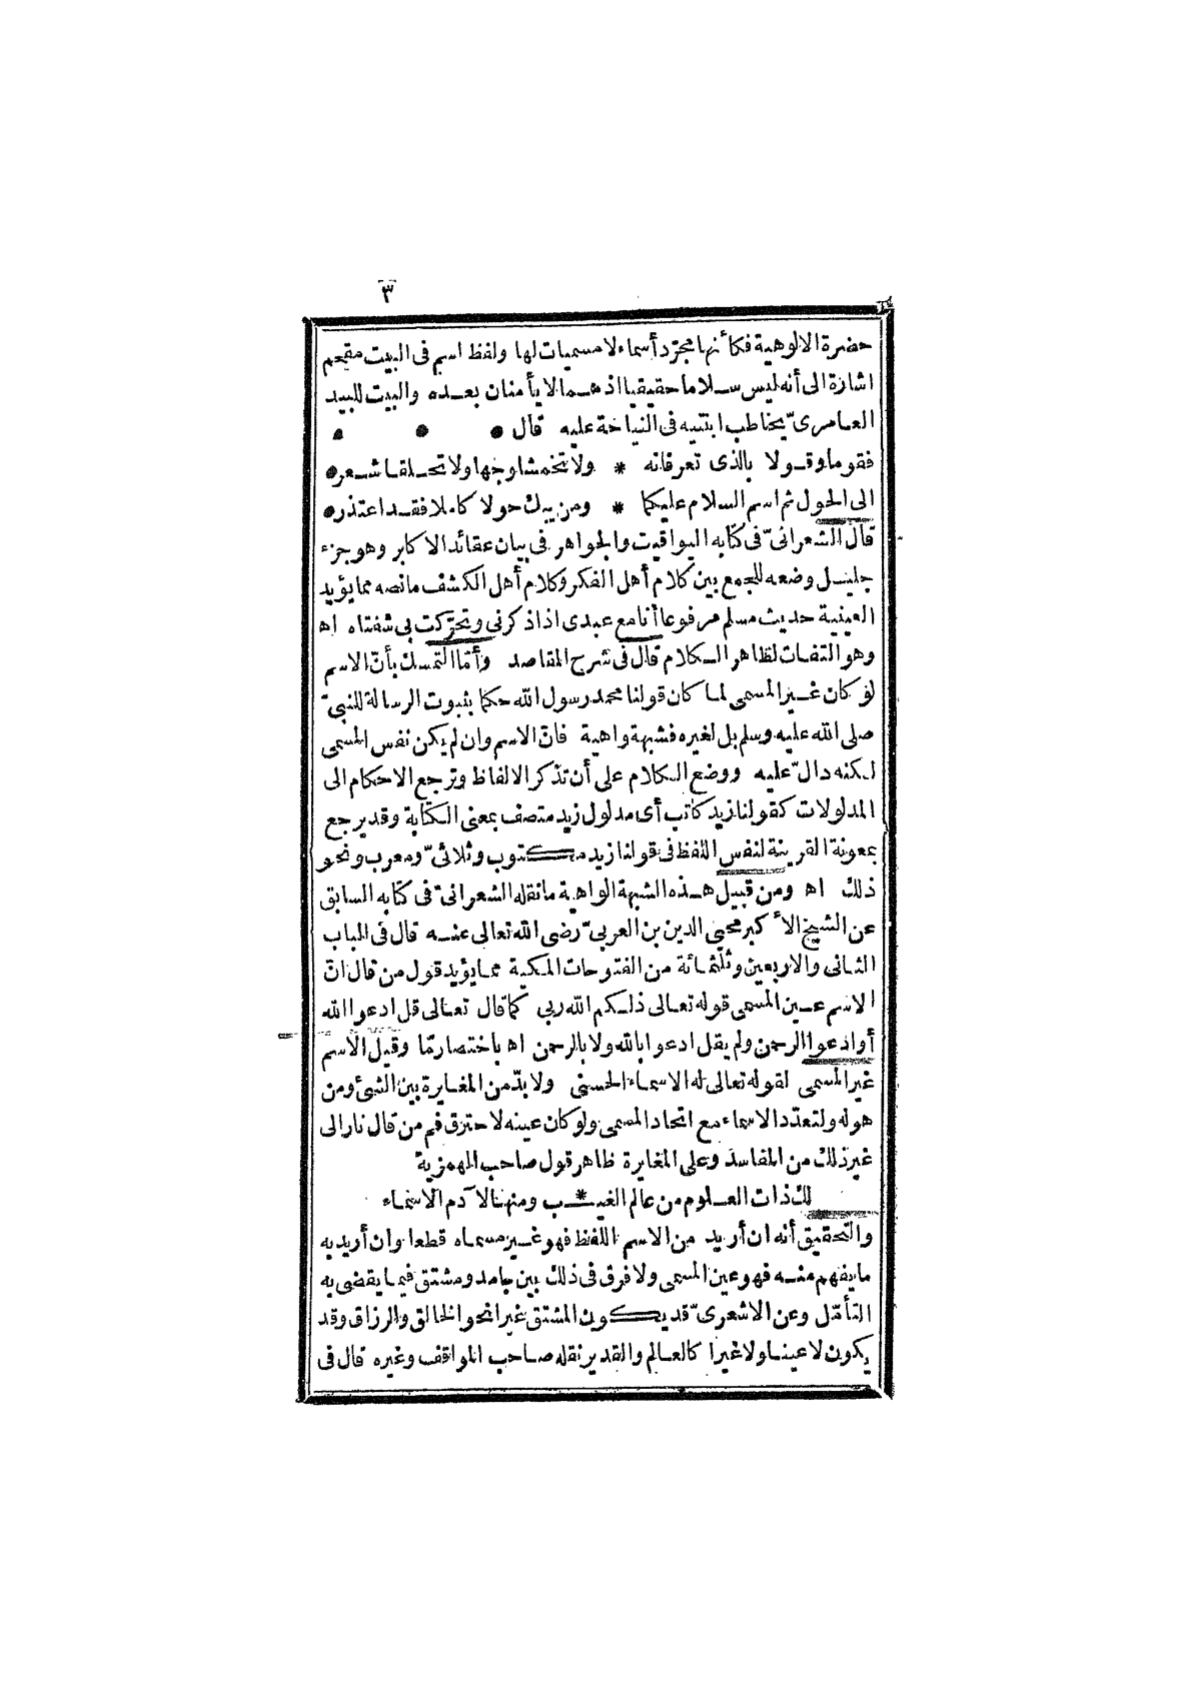 ٣
حضرة الالوهية فكأنها مجرد أسماء لا مسميات لها ولفظ اسم فى البيت مقحم
اشارة الى أنه ليس سلاما حقيقيا اذ هما لا يأمنان بعده والبيت للبيد
العامرىّ يخاطب ابنتيه فى النياحة عليه قال
فقوما وقولا بالذى تعرفانه * ولا تخمشا وجها ولا تحلقا شعر
الى الحول ثم اسم السلام عليكما * ومن يبك حولا كاملا فقد اعتذر
قال الشعرانىّ فى كتابه اليواقيت والجواهر فى بيان عقائد الاكابر وهو جزء
جليل وضعه للجمع بين كلام أهل الفكر وكلام أهل الكشف ما نصه مما يؤيد
العينية حديث مسلم مرفوعا أنا مع عبدى اذا ذكرنى وتحرّكت بى شفتاه اه
وهو التفات لظاهر الكلام قال فى شرح المقاصد وأمّا التمسك بأنّ الاسم
لو كان غير المسمى لما كان قولنا محمد رسول الله حكما بثبوت الرسالة للنبىّ
صلى الله عليه وسلم بل لغيره فشبهة واهية فانّ الاسم وان لم يكن نفس المسمى
لكنه دالّ عليه ووضع الكلام على أن تذكر الالفاظ وترجع الاحكام الى
المدلولات كقولنا زيد كاتب أى مدلول زيد متصف بمعنى الكتابة وقد يرجع
بمعونة القرينة لنفس اللفظ فى قولنا زيد مكتوب وثلاثىّ ومعرب ونحو
ذلك اه ومن قبيل هذه الشبهة الواهية ما نقله الشعرانىّ فى كتابه السابق
عن الشيخ الأكبر محيى الدين بن العربىّ رضى الله تعالى عنه قال فى الباب
الثانى والاربعين وثلثمائة من الفتوحات المكية مما يؤيد قول من قال انّ
الاسم عين المسمى قوله تعالى ذلكم الله ربى كما قال تعالى قل ادعوا الله
أو ادعوا الرحمن ولم يقل ادعوا بالله ولا بالرحمن اه باختصار مّا وقيل الاسم
غير المسمى لقوله تعالى له الاسماء الحسنى ولا بدّ من المغايرة بين الشئ ومن
هو له ولتعدّد الاسماء مع اتحاد المسمى ولو كان عينه لاحترق فم من قال نار الى
غير ذلك من المفاسد وعلى المغايرة ظاهر قول صاحب الهمزية
لك ذات العلوم من عالم الغيـ * ـب ومنها لآدم الاسماء
والتحقيق أنه ان أريد من الاسم اللفظ فهو غير مسماه قطعا وان أريد به
ما يفهم منه فهو عين المسمى ولا فرق فى ذلك بين جامد ومشتق فيما يقضى به
التأمّل وعن الاشعرىّ قد يكون المشتق غيرا نحو الخالق والرزاق وقد
يكون لا عينا ولا غيرا كالعالم والقدير نقله صاحب المواقف وغيره قال فى